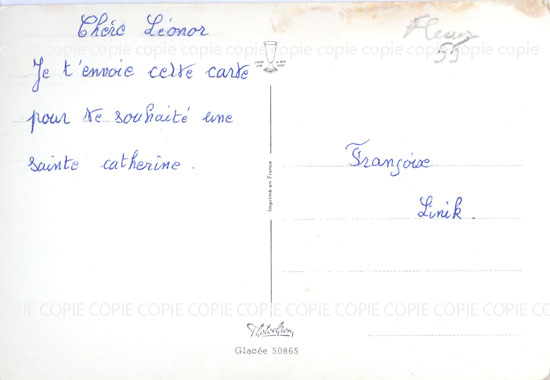 Chère Léonor
Je t'envoie cette carte
pour te souhaité une
sainte catherine.
Fleurs
55
Françoise
Linik.
Imprimé en France
Photochrom
Glacée 50865
COPIE COPIE COPIE COPIE COPIE COPIE COPIE COPIE COPIE COPIE COPIE COPIE
COPIE COPIE COPIE COPIE COPIE COPIE COPIE COPIE COPIE COPIE COPIE COPIE